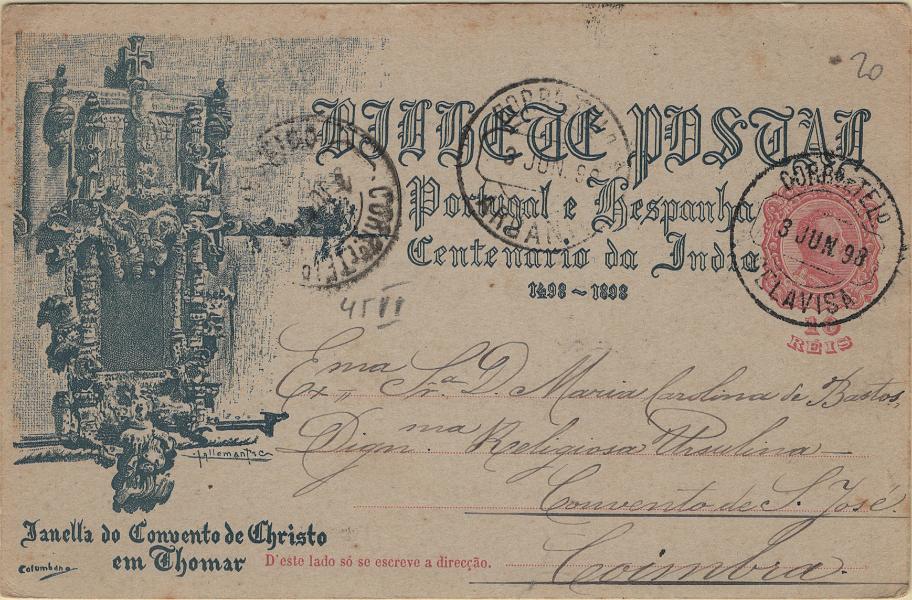 20
BILHETE POSTAL
Portugal e Hespanha
Centenario da India
1498 ~ 1898
CORRº E TELº
3 JUN. 98
CORRº E TELº
3 JUN. 98
10
REIS
Exma Sra. D. Maria Carolina de Bastos,
Dignma Religiosa Ursulina
Convento de S. José.
Coimbra.
Janella do Convento de Christo
em Thomar
Columbano
D'este lado só se escreve a direcção.